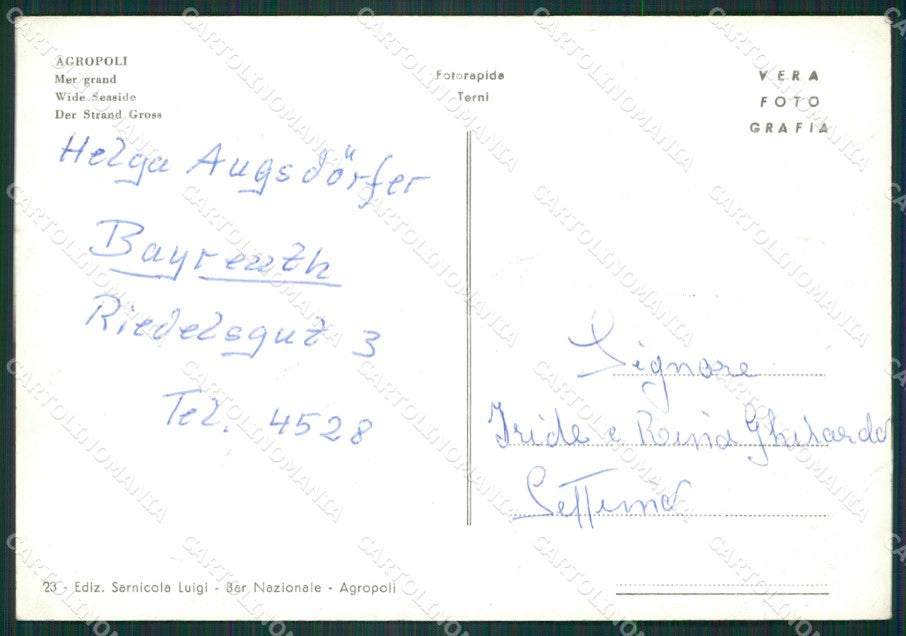 AGROPOLI
Mer grand
Wide Seaside
Der Strand Gross
Fotorapida
Terni
VERA
FOTO
GRAFIA
Helga Augsdörfer
Bayreuth
Riedelsgut 3
Tel. 4528
Signore
Iride e Rina Ghilardi
Settimo
23 - Ediz. Sarnicola Luigi - Bar Nazionale - Agropoli
CARTOLINOMANIA